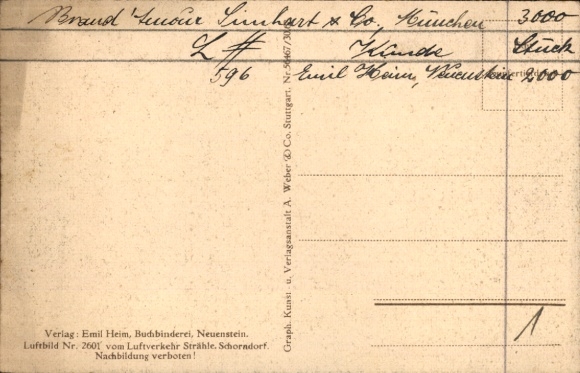 Brand Simhart & Co., München 3000
L # Kunde Stück
596 Emil Heim, Neuenstein 2000
Graph. Kunst- u. Verlagsanstalt A. Weber & Co. Stuttgart. Nr.
1
Verlag: Emil Heim, Buchbinderei, Neuenstein.
Luftbild Nr. 2601 vom Luftverkehr Strähle, Schorndorf.
Nachbildung verboten!